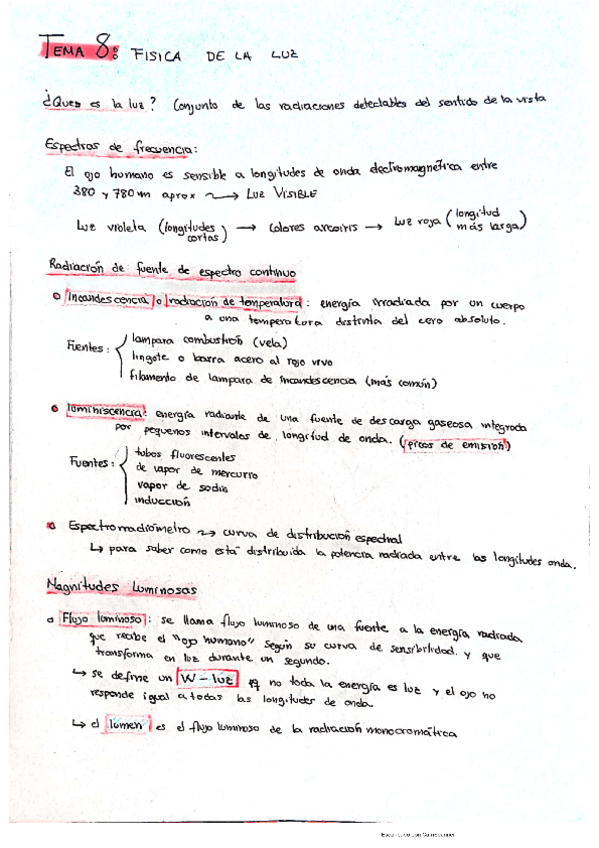 TEMA 8: FISICA DE LA LUZ
¿Ques es la luz? Conjunto de las radiaciones detectables del sentido de la vista
Espectros de frecuencia:
El ojo humano es sensible a longitudes de onda electromagnética entre
380 y 780 nm aprox ⟿ LUZ VISIBLE
Luz violeta (longitudes cortas) → colores arcoiris → Luz roja (longitud más larga)
Radiación de fuente de espectro continuo
Incandescencia o radiación de temperatura: energía irradiada por un cuerpo
a una temperatura distinta del cero absoluto.
Fuentes: lampara combustión (vela)
lingote o barra acero al rojo vivo
filamento de lampara de incandescencia (más común)
luminiscencia: energía radiante de una fuente de descarga gaseosa integrada
por pequeños intervalos de longitud de onda. (picos de emisión)
Fuentes: tubos fluorescentes
de vapor de mercurio
vapor de sodio
inducción
Espectroradiómetro ⟿ curva de distribución espectral
↳ para saber como está distribuida la potencia radiada entre las longitudes onda.
Magnitudes Luminosas
Flujo luminoso: se llama flujo luminoso de una fuente a la energía radiada
que recibe el "ojo humano" según su curva de sensibilidad y que
transforma en luz durante un segundo.
↳ se define un W-luz pq no toda la energía es luz y el ojo no
responde igual a todas las longitudes de onda.
↳ el lumen es el flujo luminoso de la radiación monocromática
Escaneado con CamScanner